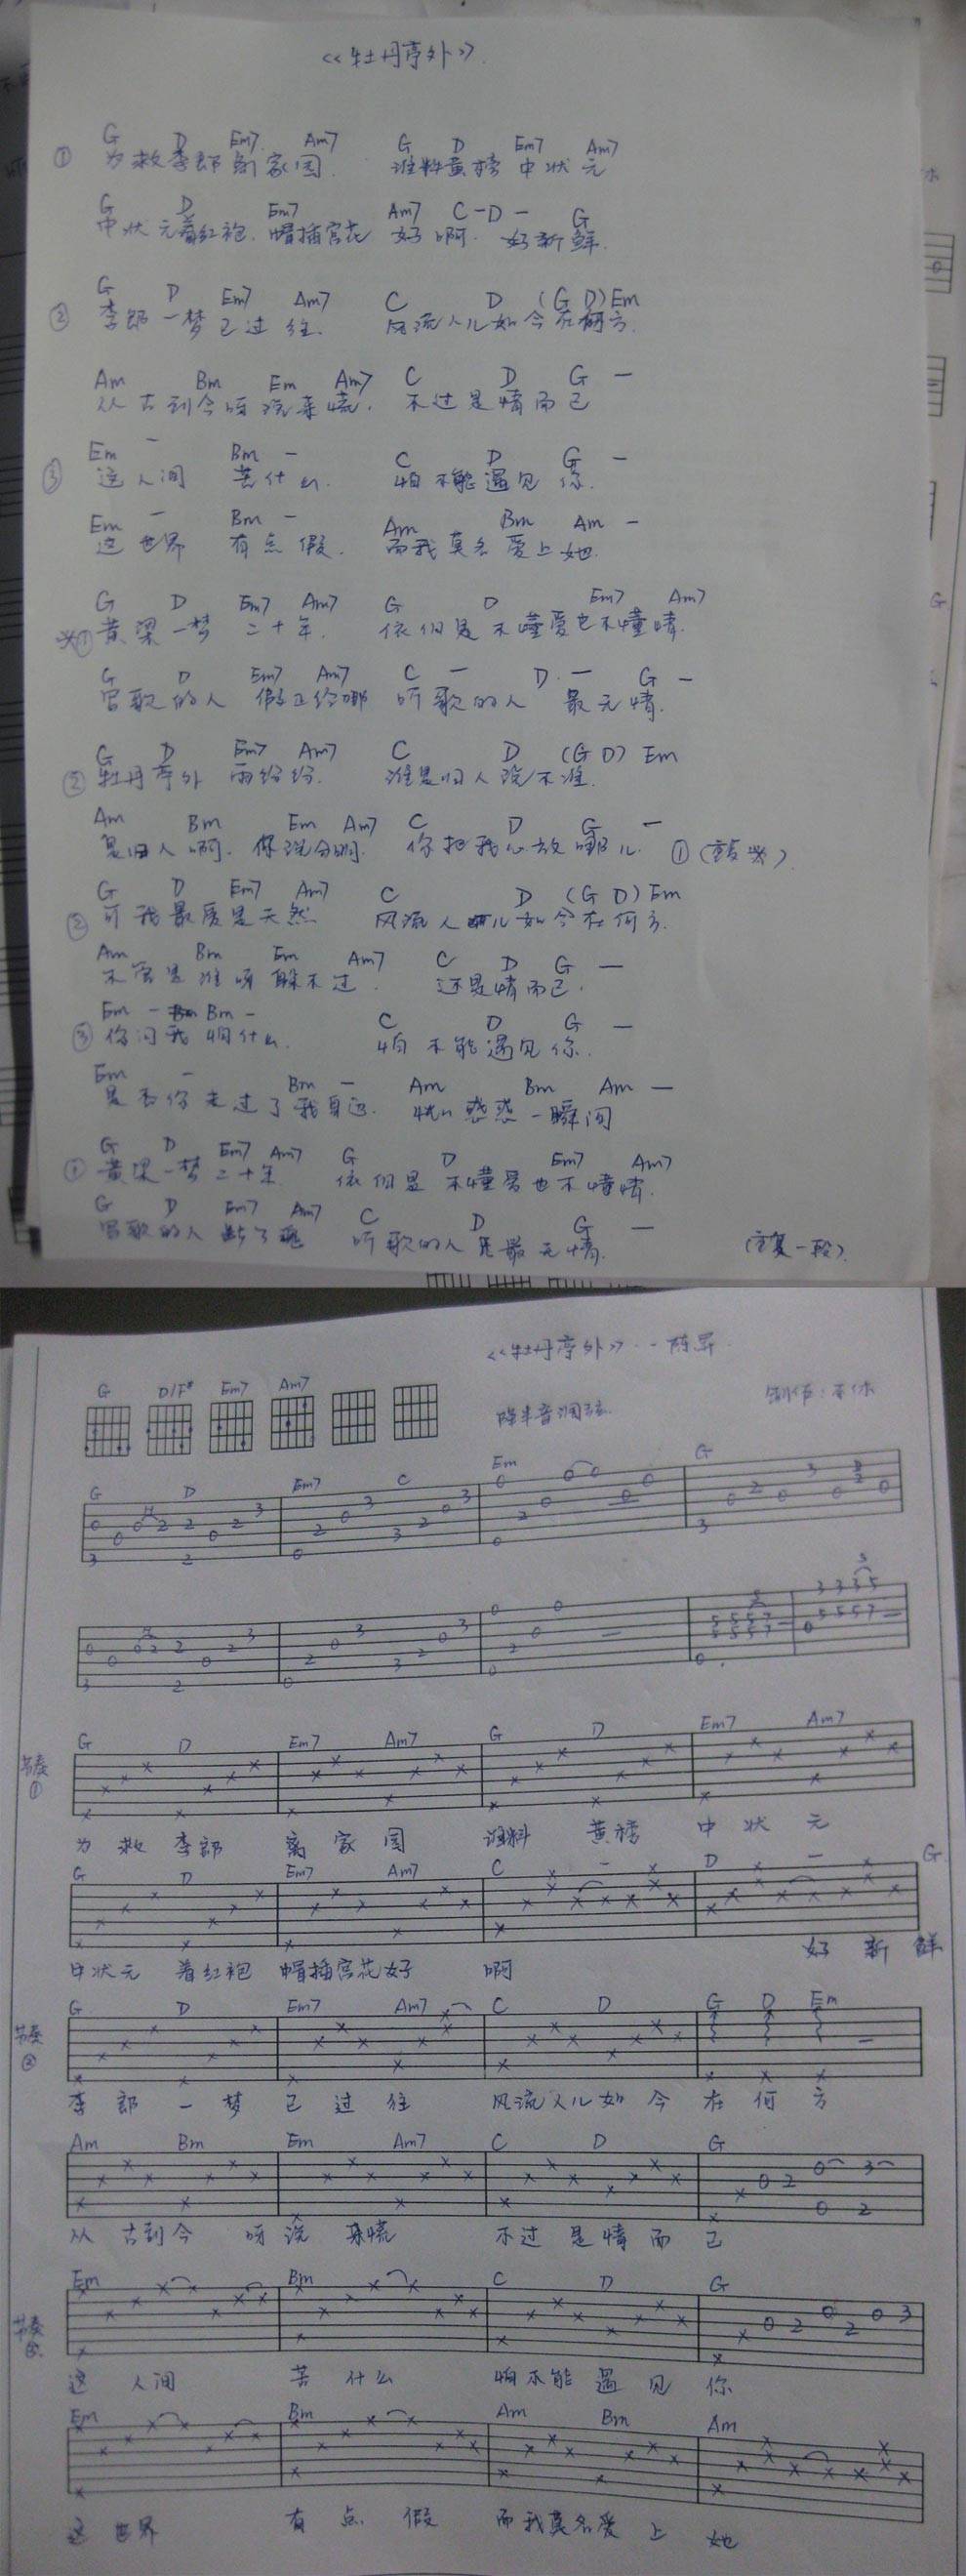 《牡丹亭外》
G D Em7 Am7 G D Em7 Am7
① 为救李郎离家园. 谁料黄榜中状元
G D Em7 Am7 C - D - G
中状元着红袍. 帽插宫花好啊. 好新鲜.
G D Em7 Am7 C D (G D) Em
② 李郎一梦已过往. 风流人儿如今在何方.
Am Bm Em Am7 C D G -
从古到今呀说来慌. 不过是情而已
Em - Bm - C D G -
③ 这人间 苦什么. 怕不能遇见你.
Em - Bm - Am Bm Am -
这世界 有点假. 而我莫名爱上她.
G D Em7 Am7 G D Em7 Am7
※① 黄梁一梦 二十年. 依旧是不懂爱也不懂情.
G D Em7 Am7 C - D - G -
唱歌的人 假正经哪 听歌的人 最无情.
G D Em7 Am7 C D (G D) Em
② 牡丹亭外 雨纷纷. 谁是归人说不准.
Am Bm Em Am7 C D G -
是归人啊. 你说分明. 你把我心放哪儿. ① (重复※)
G D Em7 Am7 C D (G D) Em
② 可我最爱是天然 风流人儿如今在何方.
Am Bm Em Am7 C D G -
不管是谁呀躲不过. 还是情而已.
Em - Bm - C D G -
③ 你问我 怕什么. 怕不能遇见你.
Em - Bm - Am Bm Am -
是否你走过了我身边. 恍恍惑惑一瞬间
G D Em7 Am7 G D Em7 Am7
① 黄梁一梦二十年 依旧是 不懂爱也不懂情.
G D Em7 Am7 C D G -
唱歌的人断了魂 听歌的人最无情. (重复一段)
《牡丹亭外》--陈升
G D/F# Em7 Am7
降半音调弦.
G D Em7 C Em G
G D Em7 Am7 G D Em7 Am7
节奏①
为救李郎 离家园 谁料 黄榜 中状元
G D Em7 Am7 C - D - G
中状元 着红袍 帽插宫花好 啊 好新鲜
G D Em7 Am7 C D G D Em
节奏②
李郎一梦 已过往 风流人儿如今在何方
Am Bm Em Am7 C D G
从古到今 呀说来慌 不过是情而已
Em Bm C D G
节奏③
这人间 苦什么 怕不能遇见你
Em Bm Am Bm Am
这世界 有点假 而我莫名爱上她